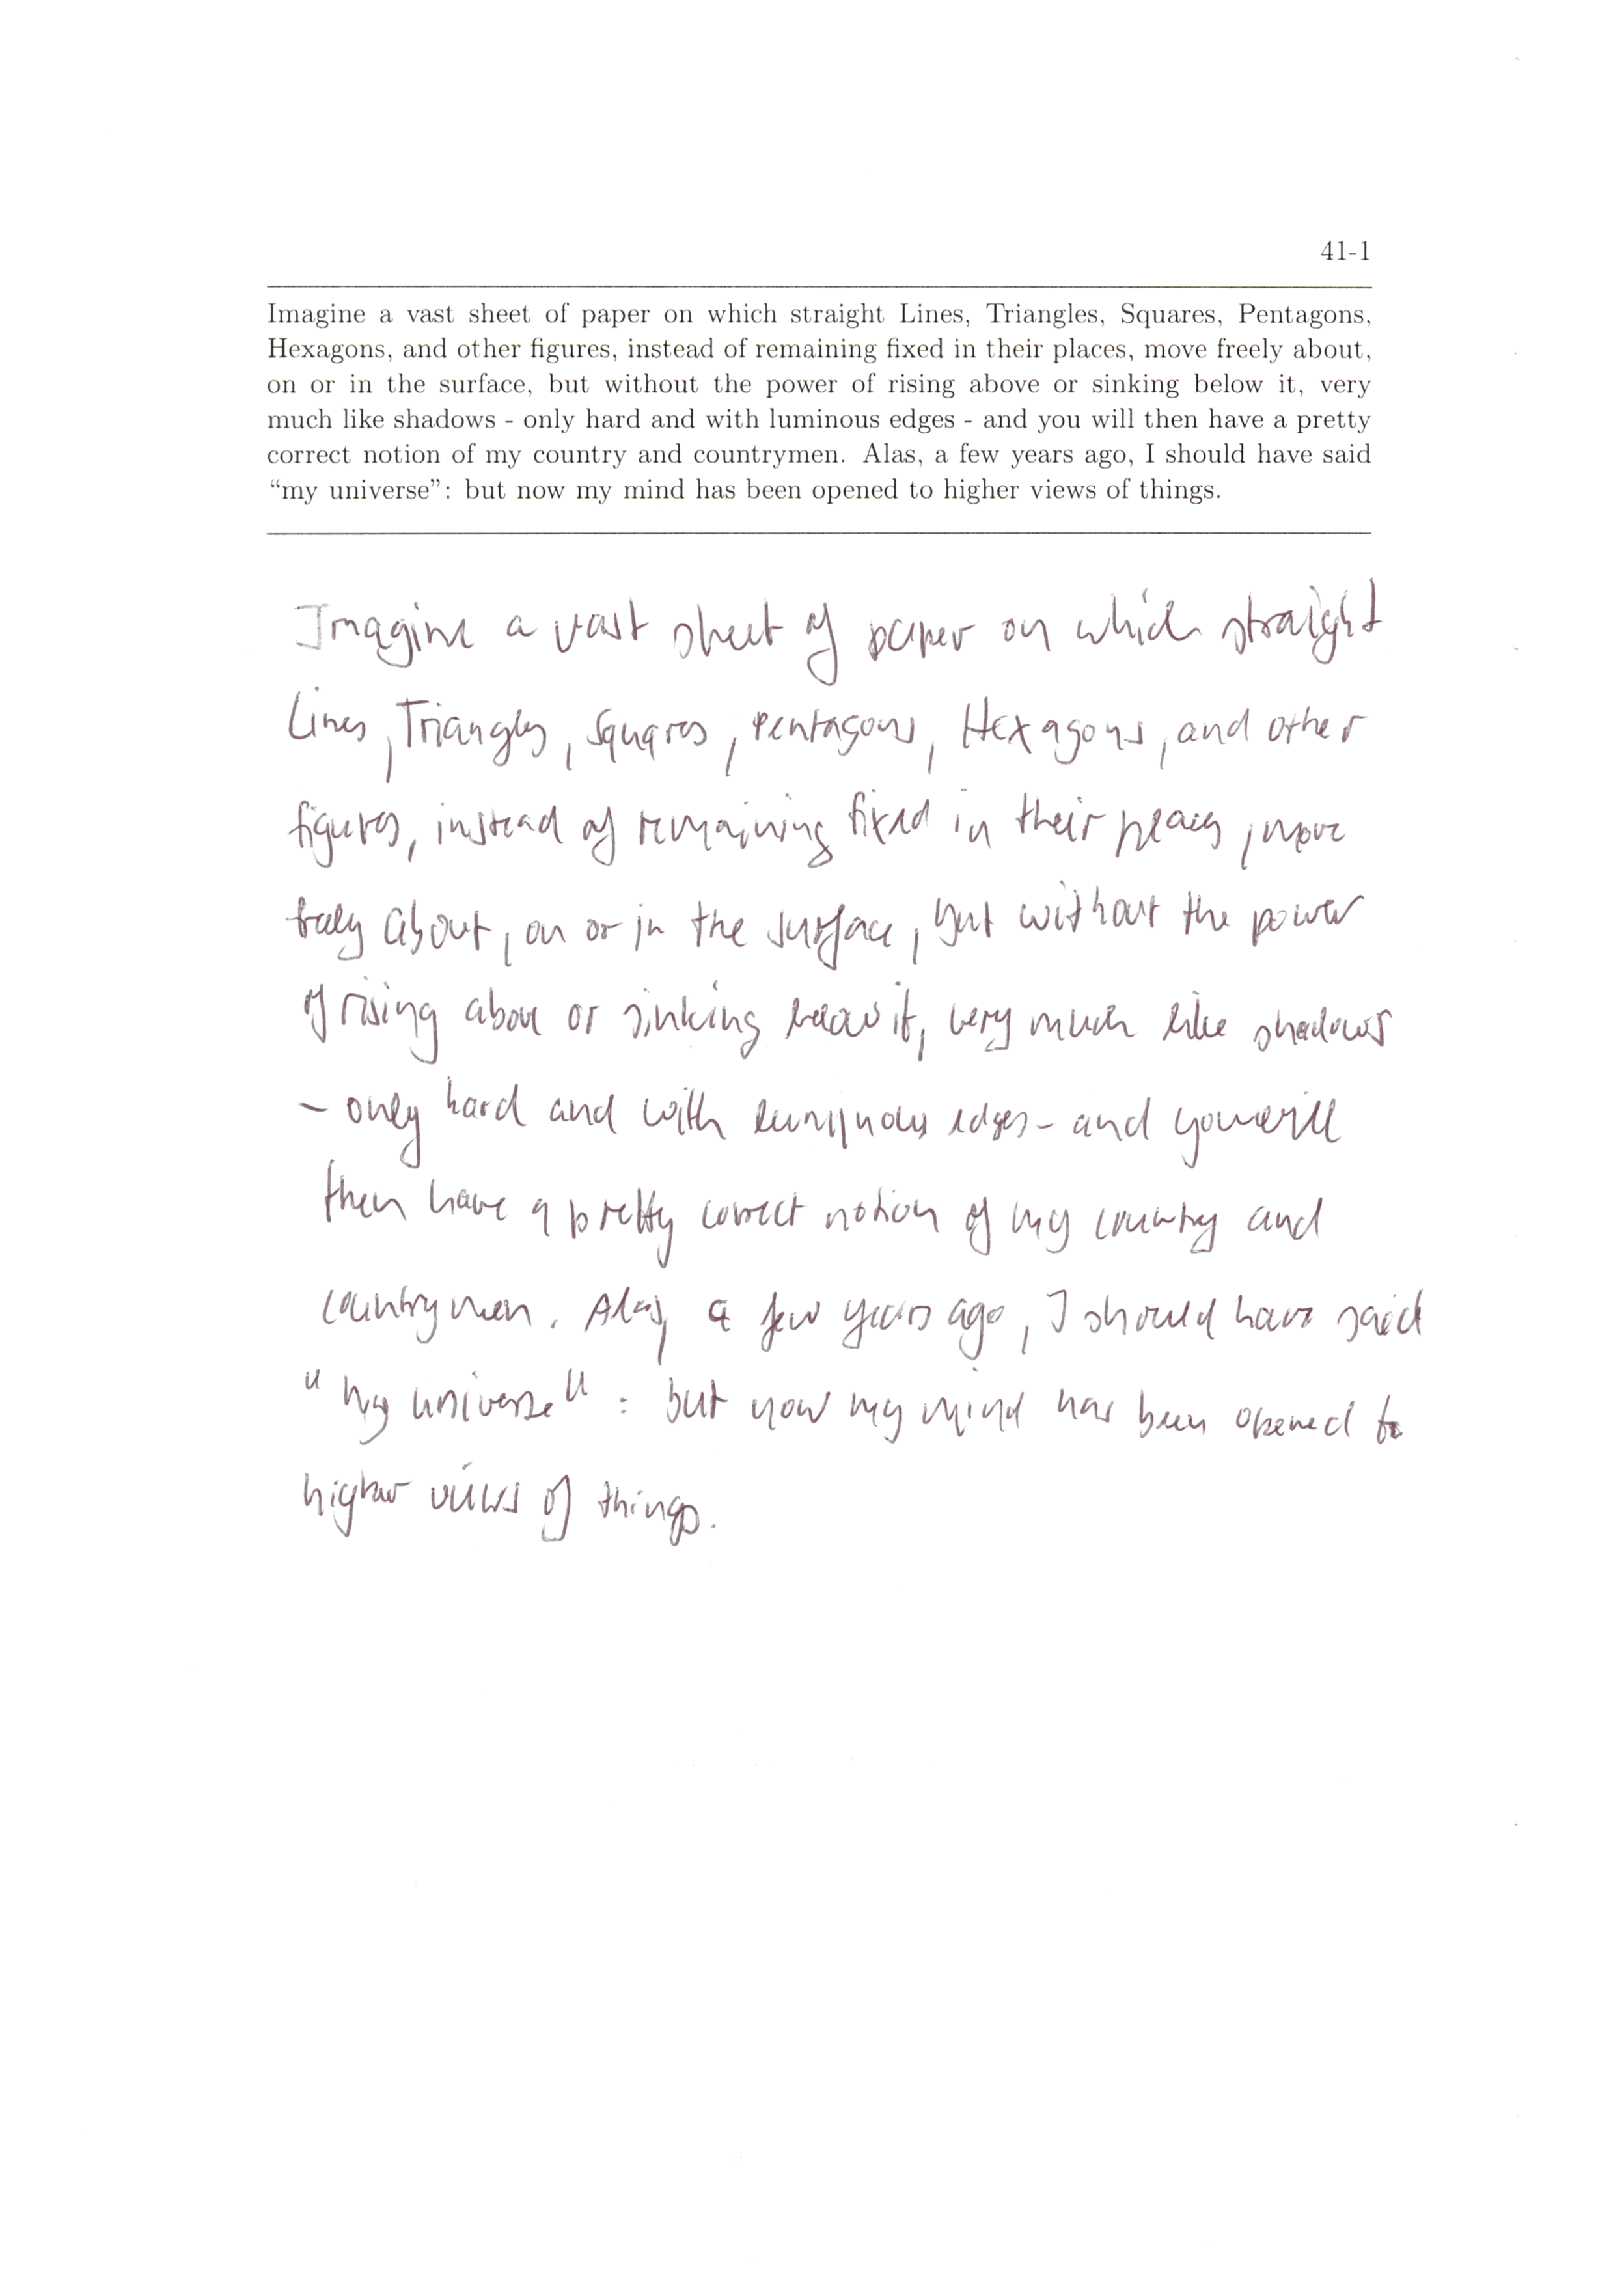 41-1
Imagine a vast sheet of paper on which straight Lines, Triangles, Squares, Pentagons,
Hexagons, and other figures, instead of remaining fixed in their places, move freely about,
on or in the surface, but without the power of rising above or sinking below it, very
much like shadows - only hard and with luminous edges - and you will then have a pretty
correct notion of my country and countrymen. Alas, a few years ago, I should have said
“my universe”: but now my mind has been opened to higher views of things.
Imagine a vast sheet of paper on which straight
Lines, Triangles, Squares, Pentagons, Hexagons, and other
figures, instead of remaining fixed in their places, move
freely about, on or in the surface, but without the power
of rising above or sinking below it, very much like shadows
- only hard and with luminous edges - and you will
then have a pretty correct notion of my country and
countrymen. Alas, a few years ago, I should have said
"my universe": but now my mind has been opened to
higher views of things.